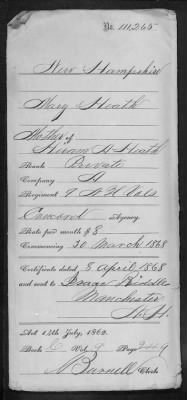 No. 111,265
New Hampshire
Mary Heath
Mother of
Hiram H Heath
Rank Private
Company A
Regiment 9 N H Vols
Concord Agency.
Rate per month $8
Commencing 30 March 1868
Certificate dated 8 April 1868
and sent to Isaac Riddle
Manchester
N.H.
Act 14th July, 1862.
Book C Vol. 9 Page 249
Barnell Clerk